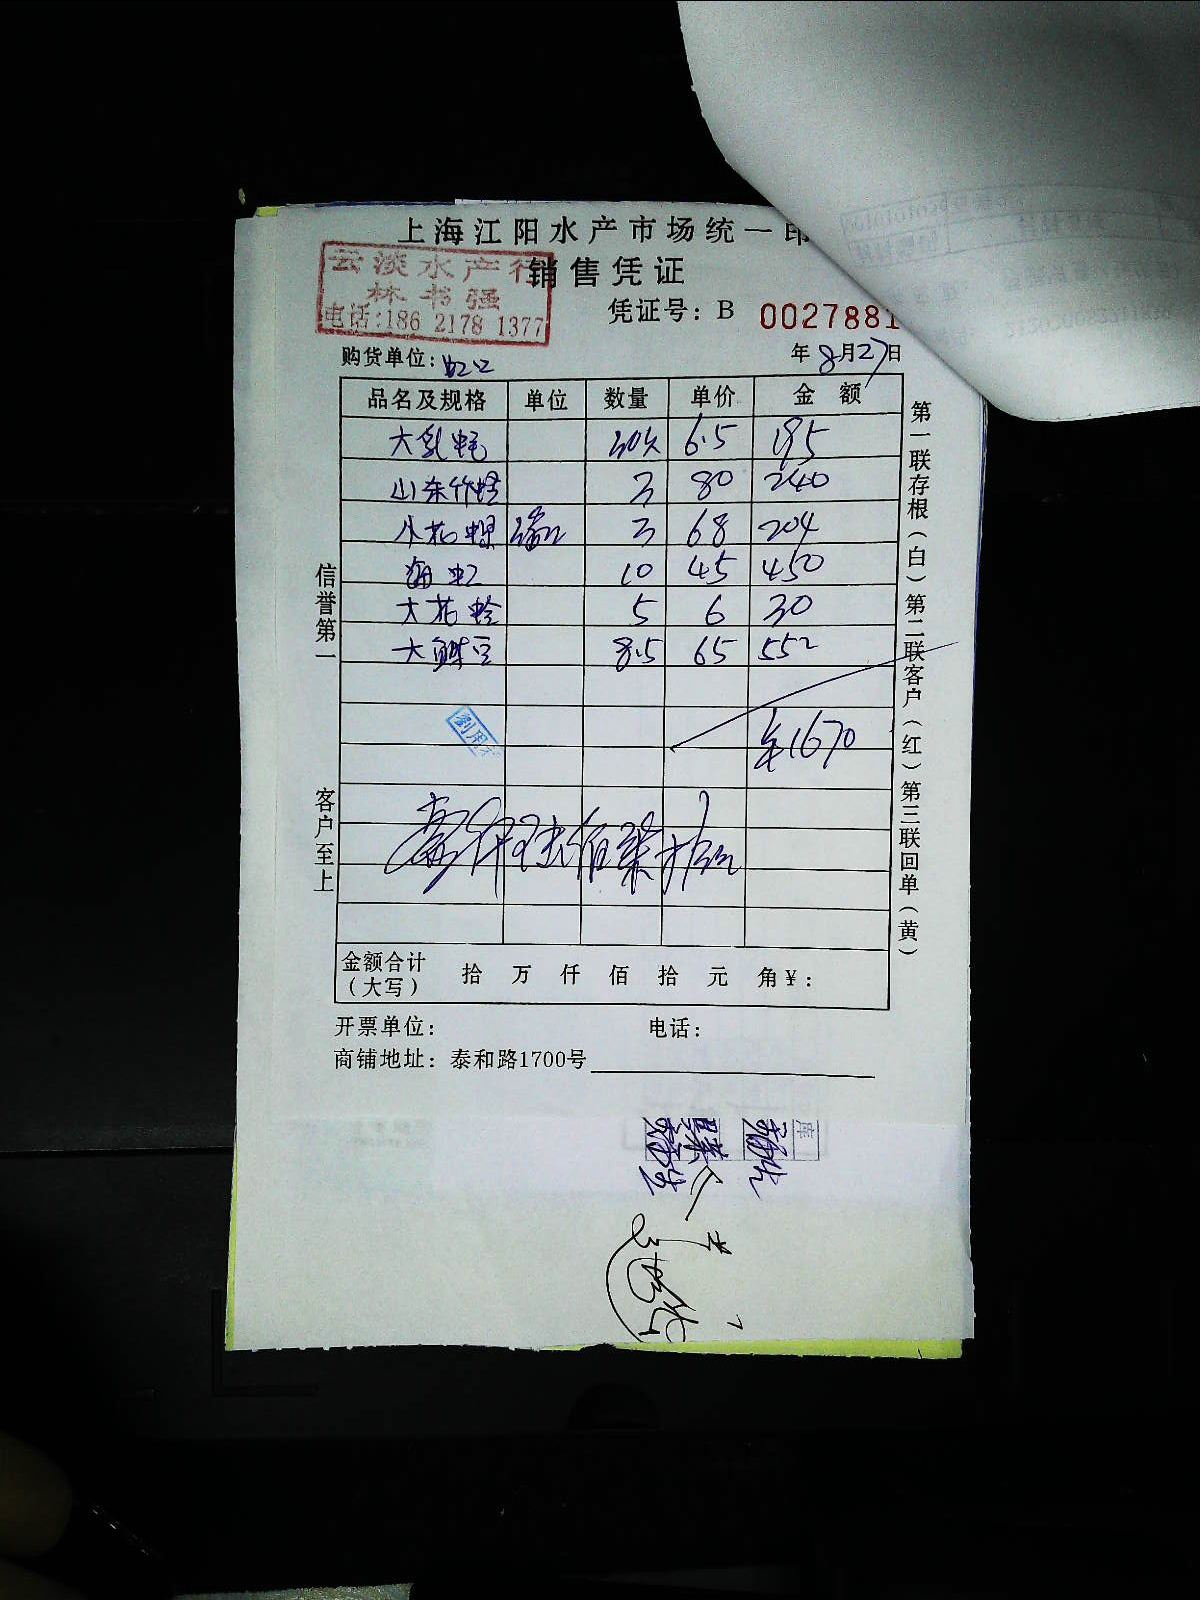 上海江阳水产市场统一印
云淡水产行
销售凭证
林书强
电话:186 2178 1377
凭证号: B 0027881
购货单位: 虹口
年 8月27日
品名及规格 单位 数量 单价 金额
大乳蚝 30只 6.5 195
山东竹蛏 3 80 240
小花螺 3 68 204
海虹 10 45 450
大花蛤 5 6 30
大鲜豆 8.5 65 552
¥1670
劉用
壹仟陆佰柒拾元
金额合计
(大写) 拾 万 仟 佰 拾 元 角 ¥:
开票单位: 电话:
商铺地址: 泰和路1700号
信誉第一 客户至上
第一联存根(白) 第二联客户(红) 第三联回单(黄)
库